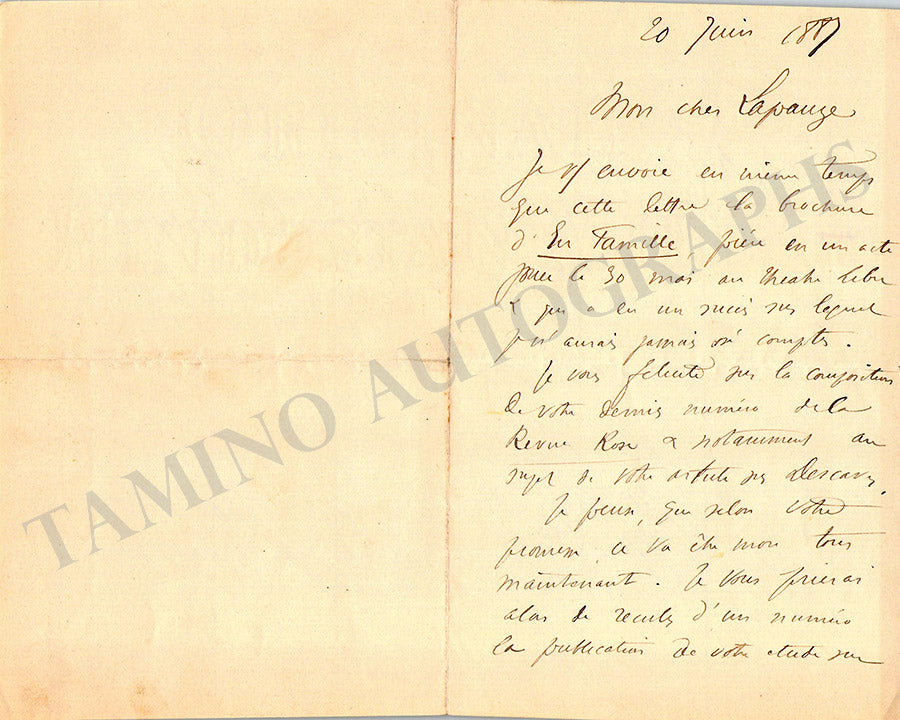 20 Juin 1887
Mon cher Lapauze
Je vs envoie en même temps
que cette lettre la brochure
d'En Famille, pièce en un acte
jouée le 30 mai au theatre Libre
& qui a eu un succès sur lequel
je n'aurais jamais osé compter.
Je vous félicite sur la composition
de votre dernier numéro de la
Revue Rose & notamment au
sujet de votre article sur Descaves.
Je pense, que selon votre
promesse ce va être mon tour
maintenant. Je vous prierai
alors de reculer d'un numéro
la publication de votre etude sur
TAMINO AUTOGRAPHS